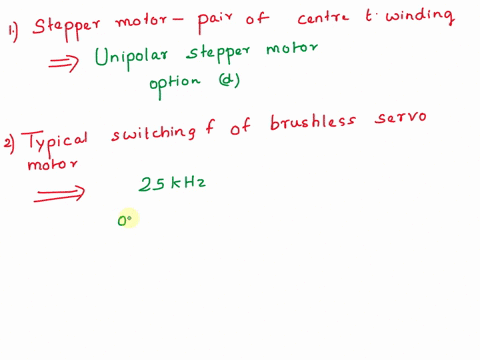 1.) Stepper motor - pair of centre t. winding
⇒ Unipolar stepper motor
option (d)
2) Typical switching f of brushless servo
motor
⇒ 25 kHz
o